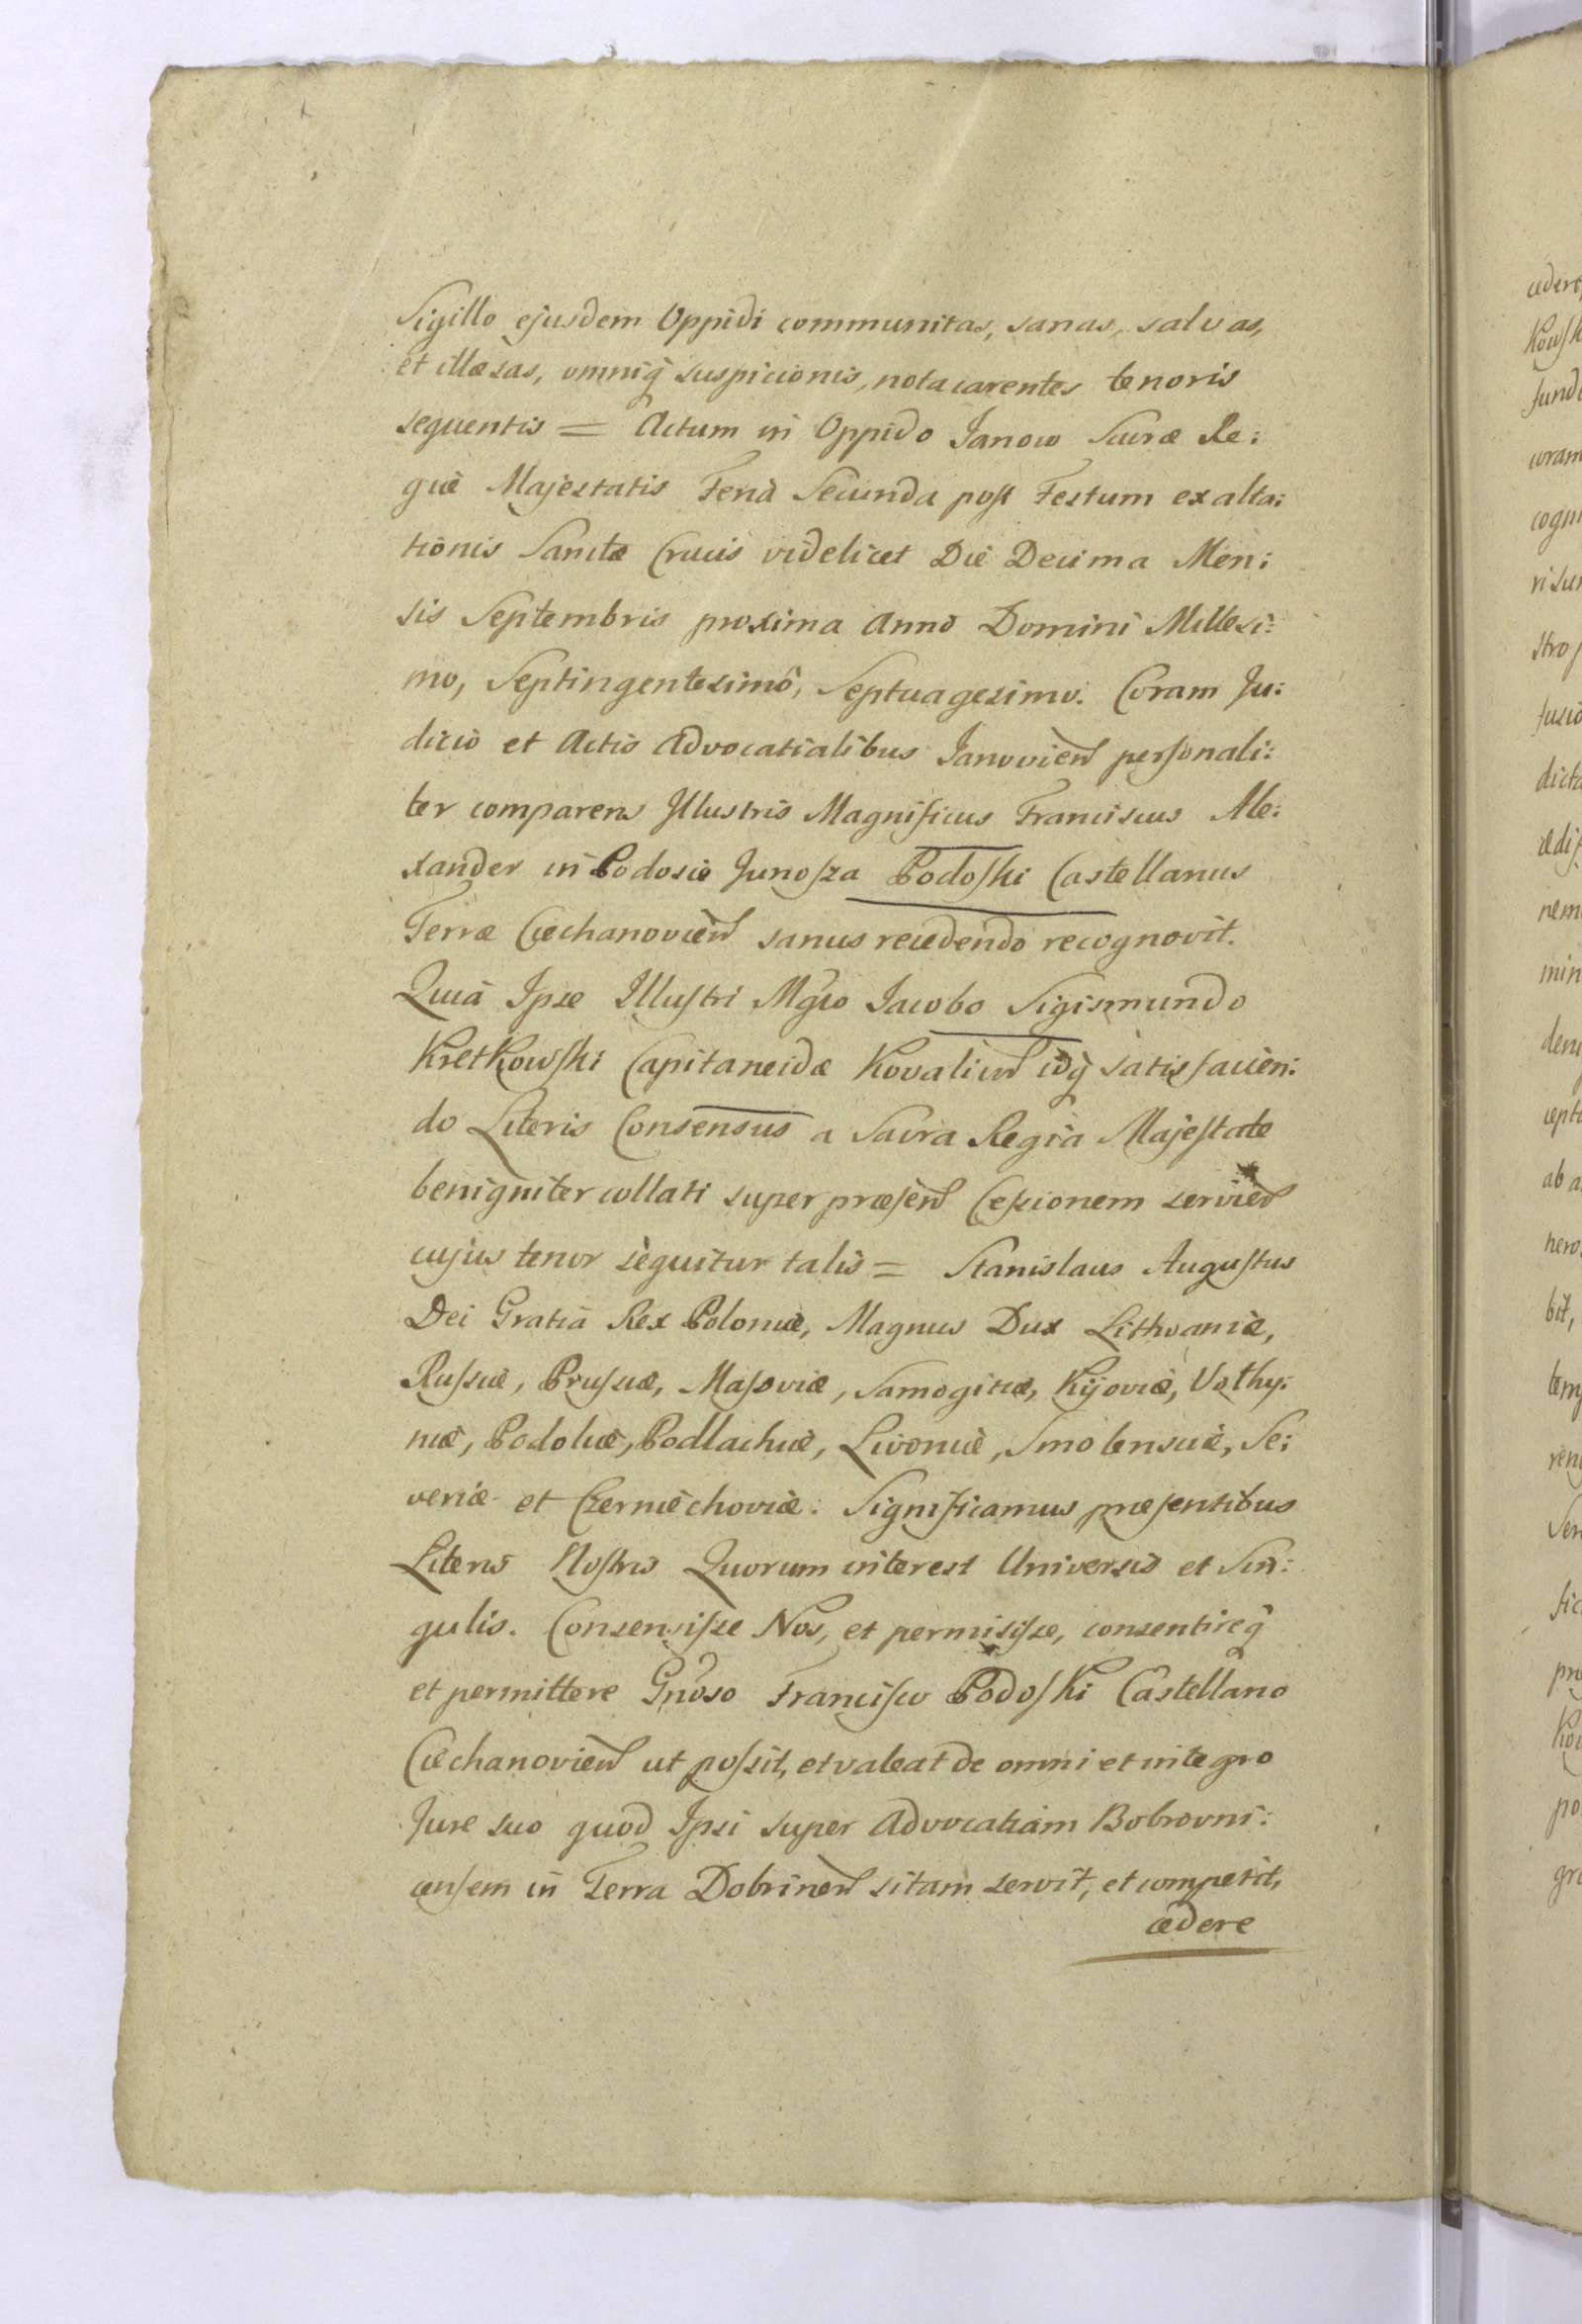 Sigillo ejusdem Oppidi communitas, sanas, salvas,
et illæsas, omniq̃ suspicionis, nota carentes tenoris
sequentis = Actum in Oppido Janow Sacræ Re:
giæ Majestatis Feria Secunda post Festum exalta:
tionis Sanctæ Crucis videlicet Die Decima Men:
sis Septembris proxima Anno Domini Millesi:
mo, Septingentesimô, Septuagesimo. Coram Ju:
dicio et Actis Advocatialibus Janovien̄ personali:
ter comparens Illustris Magnificus Franciscus Ale:
xander in Podosie Junosza Podoski Castellanus
Terræ Ciechanovien̄ sanus recedendo recognovit.
Quia Ipse Illustri Mgco Jacobo Sigismundo
Kretkowski Capitaneidæ Kovalien̄ idq̃ satisfacien:
do Literis Consensus a Sacra Regia Majestate
benigniter collati super præsen̄ Cessionem servien̄
cujus tenor sequitur talis = Stanislaus Augustus
Dei Gratia Rex Poloniæ, Magnus Dux Lithvaniæ,
Russiæ, Prussiæ, Masoviæ, Samogitiæ, Kijoviæ, Volhy:
niæ, Podoliæ, Podlachiæ, Livoniæ, Smolensciæ, Se:
veriæ et Czerniechoviæ. Significamus præsentibus
Literis Nostris Quorum interest Universis et Sin:
gulis. Consensisse Nos, et permisisse, consentireq̃
et permittere Gnoso Francisco Podoski Castellano
Ciechanovien̄ ut possit, et valeat de omni et integro
Jure suo quod Ipsi super Advocatiam Bobrovni:
censem in Terra Dobrinen̄ sitam servit, et competit,
cedere